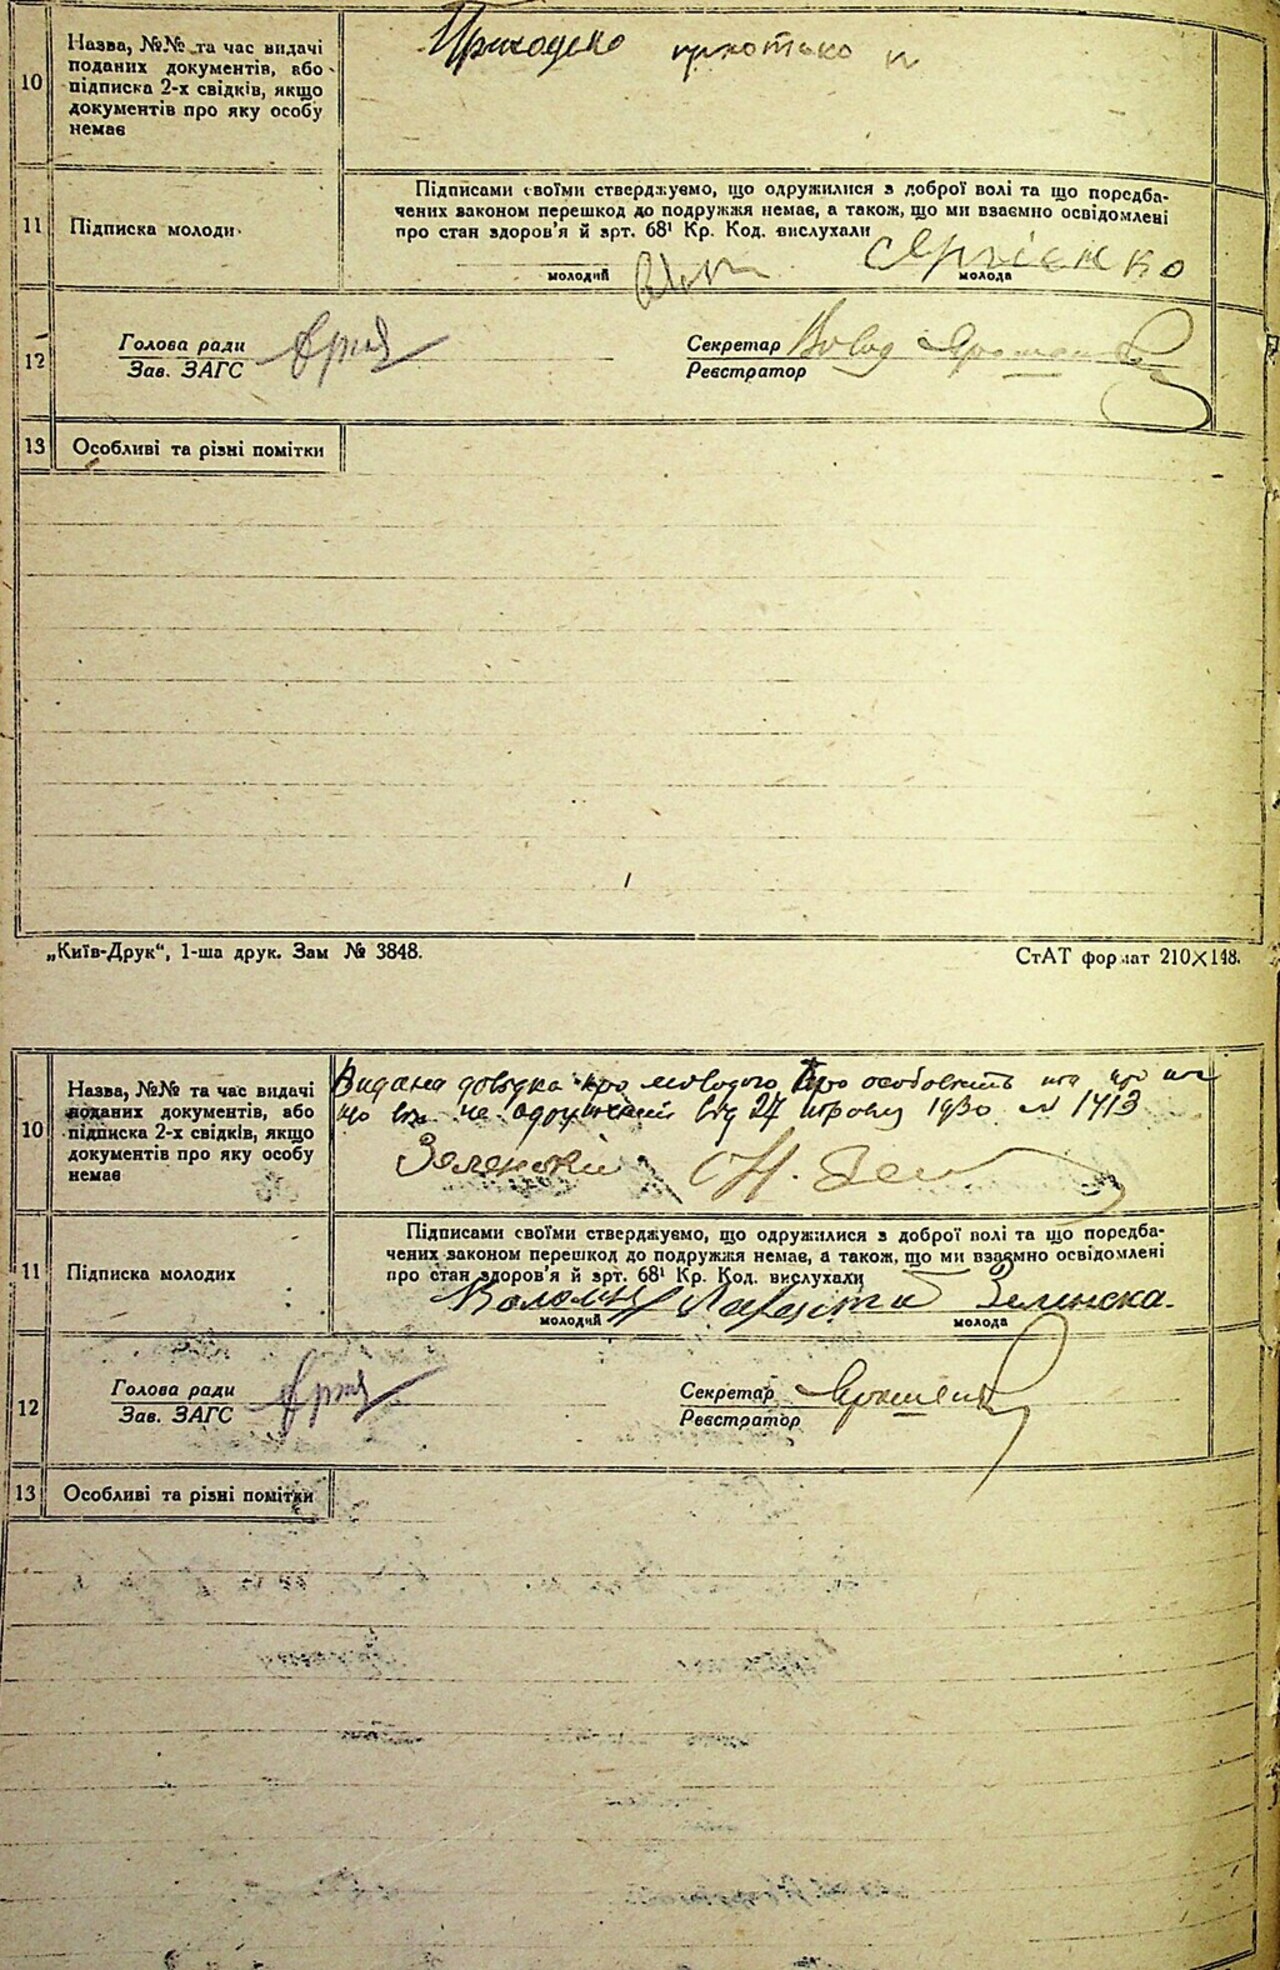 10
Назва, №№ та час видачі
поданих документів, або
підписка 2-х свідків, якщо
документів про яку особу
немає
Приходько
11
Підписка молоди
Підписами своїми стверджуємо, що одружилися з доброї волі та що передба-
чених законом перешкод до подружжя немає, а також, що ми взаємно освідомлені
про стан здоров'я й арт. 68¹ Кр. Код. вислухали
молодий
Сергієнко
молода
12
Голова ради
Зав. ЗАГС
Секретар
Реєстратор
13
Особливі та різні помітки
„Київ-Друк“, 1-ша друк. Зам № 3848.
СтАТ формат 210×148.
10
Назва, №№ та час видачі
поданих документів, або
підписка 2-х свідків, якщо
документів про яку особу
немає
Видана довідка про молодого про
що він не одружений від 27 1930 N 1413
Зеленский Н. Зел
11
Підписка молодих
Підписами своїми стверджуємо, що одружилися з доброї волі та що передба-
чених законом перешкод до подружжя немає, а також, що ми взаємно освідомлені
про стан здоров'я й арт. 68¹ Кр. Код. вислухали
Зелинска
молодий
молода
12
Голова ради
Зав. ЗАГС
Секретар
Реєстратор
13
Особливі та різні помітки